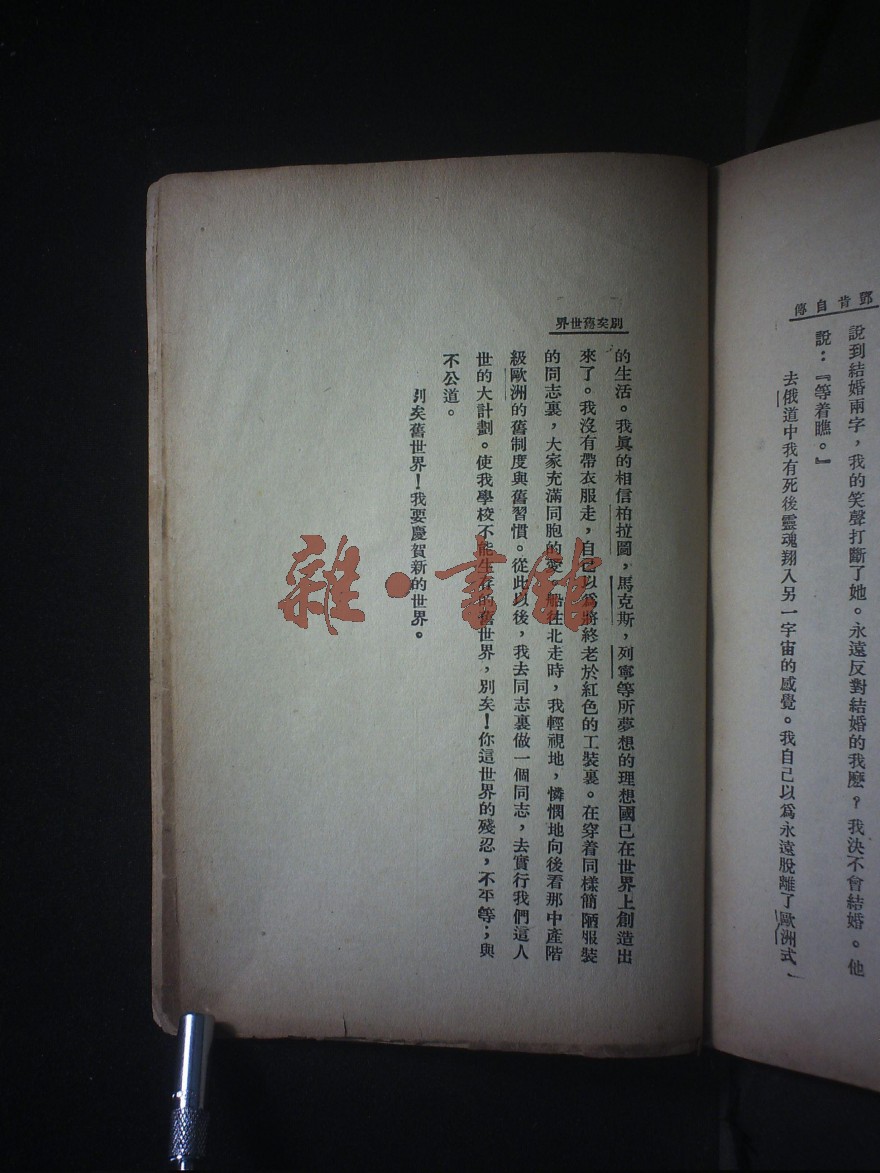 鄧肯自傳
說到結婚兩字，我的笑聲打斷了她。永遠反對結婚的我麽？我決不會結婚。他
說：『等着瞧。』
去俄道中我有死後靈魂翔入另一宇宙的感覺。我自己以爲永遠脫離了歐洲式、
別矣舊世界
的生活。我眞的相信柏拉圖，馬克斯，列寧等所夢想的理想國已在世界上創造出
來了。我沒有帶衣服走，自己以爲將終老於紅色的工裝裏。在穿着同樣簡陋服裝
的同志裏，大家充滿同胞的愛。船往北走時，我輕視地，憐憫地向後看那中產階
級歐洲的舊制度與舊習慣。從此以後，我去同志裏做一個同志，去實行我們這人
世的大計劃。使我學校不能生存的舊世界，別矣！你這世界的殘忍，不平等；與
不公道。
別矣舊世界！我要慶賀新的世界。
雜·書館